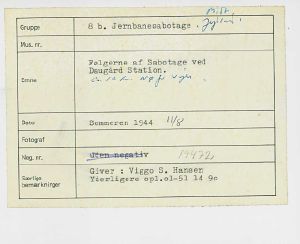 Gruppe 8 b. Jernbanesabotage. Jylland
Mus. nr.
Følgerne af Sabotage ved
Emne Daugård Station.
Dato Sommeren 1944 11/8
Fotograf
Neg. nr. Uden negativ 19472
Giver : Viggo S. Hansen
Særlige bemærkninger Yderligere opl.01-51 14 9c